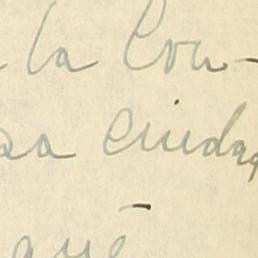 la Cou-
sa ciudad
que